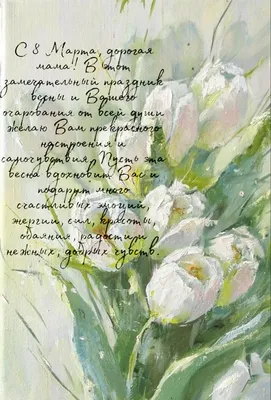 С 8 Марта, дорогая
мама!! В этот
замечательный праздник
весны и Вашего
очарования от всей души
желаю Вам прекрасного
настроения и
самочувствия. Пусть эта
весна вдохновит Вас и
подарит много
счастливых эмоций,
энергии, сил, красоты,
обаяния, радости и
нежных, добрых чувств.